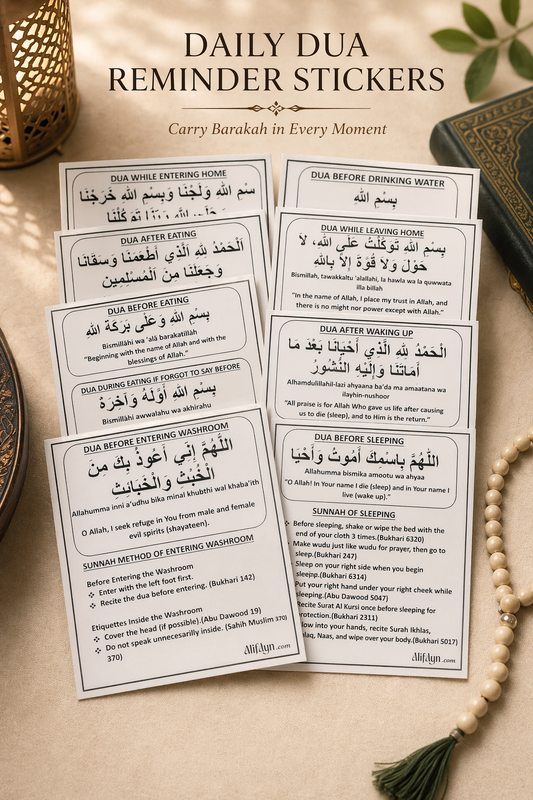 DAILY DUA
REMINDER STICKERS
Carry Barakah in Every Moment
DUA WHILE ENTERING HOME
سْمِ اللهِ وَلَجْنَا وَبِسْمِ اللهِ خَرَجْنَا
DUA AFTER EATING
اَلْحَمْدُ لِلّٰهِ الَّذِي أَطْعَمَنَا وَسَقَانَا
وَجَعَلَنَا مِنَ الْمُسْلِمِينَ
DUA BEFORE EATING
بِسْمِ اللهِ وَعَلَى بَرَكَةِ اللهِ
Bismillāhi wa 'alā barakatillāh
"Beginning with the name of Allah and with the
blessings of Allah."
DUA DURING EATING IF FORGOT TO SAY BEFORE
بِسْمِ اللهِ أَوَّلَهُ وَآخِرَهُ
Bismillāhi awwalahu wa akhirahu
DUA BEFORE ENTERING WASHROOM
اللَّهُمَّ إِنِّي أَعُوذُ بِكَ مِنَ
الْخُبُثِ وَالْخَبَائِثِ
Allahumma inni a'udhu bika minal khubthi wal khaba'ith
O Allah, I seek refuge in You from male and female
evil spirits (shayateen).
SUNNAH METHOD OF ENTERING WASHROOM
Before Entering the Washroom
❖ Enter with the left foot first.
❖ Recite the dua before entering. (Bukhari 142)
Etiquettes Inside the Washroom
❖ Cover the head (if possible).(Abu Dawood 19)
❖ Do not speak unnecesarilly inside. (Sahih Muslim 370)
370)
Alifayn.com
DUA BEFORE DRINKING WATER
بِسْمِ اللهِ
DUA WHILE LEAVING HOME
بِسْمِ اللهِ تَوَكَّلْتُ عَلَى اللهِ، لَا
حَوْلَ وَلَا قُوَّةَ إِلَّا بِاللهِ
Bismillah, tawakkaltu 'alallahi, la hawla wa la quwwata
illa billah
"In the name of Allah, I place my trust in Allah, and
there is no might nor power except with Allah."
DUA AFTER WAKING UP
الْحَمْدُ لِلّٰهِ الَّذِي أَحْيَانَا بَعْدَ مَا
أَمَاتَنَا وَإِلَيْهِ النُّشُورُ
Alhamdulillahil-lazi ahyaana ba'da ma amaatana wa
ilayhin-nushoor
"All praise is for Allah Who gave us life after causing
us to die (sleep), and to Him is the return."
DUA BEFORE SLEEPING
اللَّهُمَّ بِاسْمِكَ أَمُوتُ وَأَحْيَا
Allahumma bismika amootu wa ahyaa
"O Allah! In Your name I die (sleep) and in Your name I
live (wake up)."
SUNNAH OF SLEEPING
Before sleeping, shake or wipe the bed with the
end of your cloth 3 times.(Bukhari 6320)
Make wudu just like wudu for prayer, then go to
sleep.(Bukhari 247)
Sleep on your right side when you begin
(Bukhari 6314)
Put your right hand under your right cheek while
sleeping.(Abu Dawood 5047)
Recite Surat Al Kursi once before sleeping for
protection.(Bukhari 2311)
low into your hands, recite Surah Ikhlas,
laq, Naas, and wipe over your body.(Bukhari 5017)
Alifayn.com